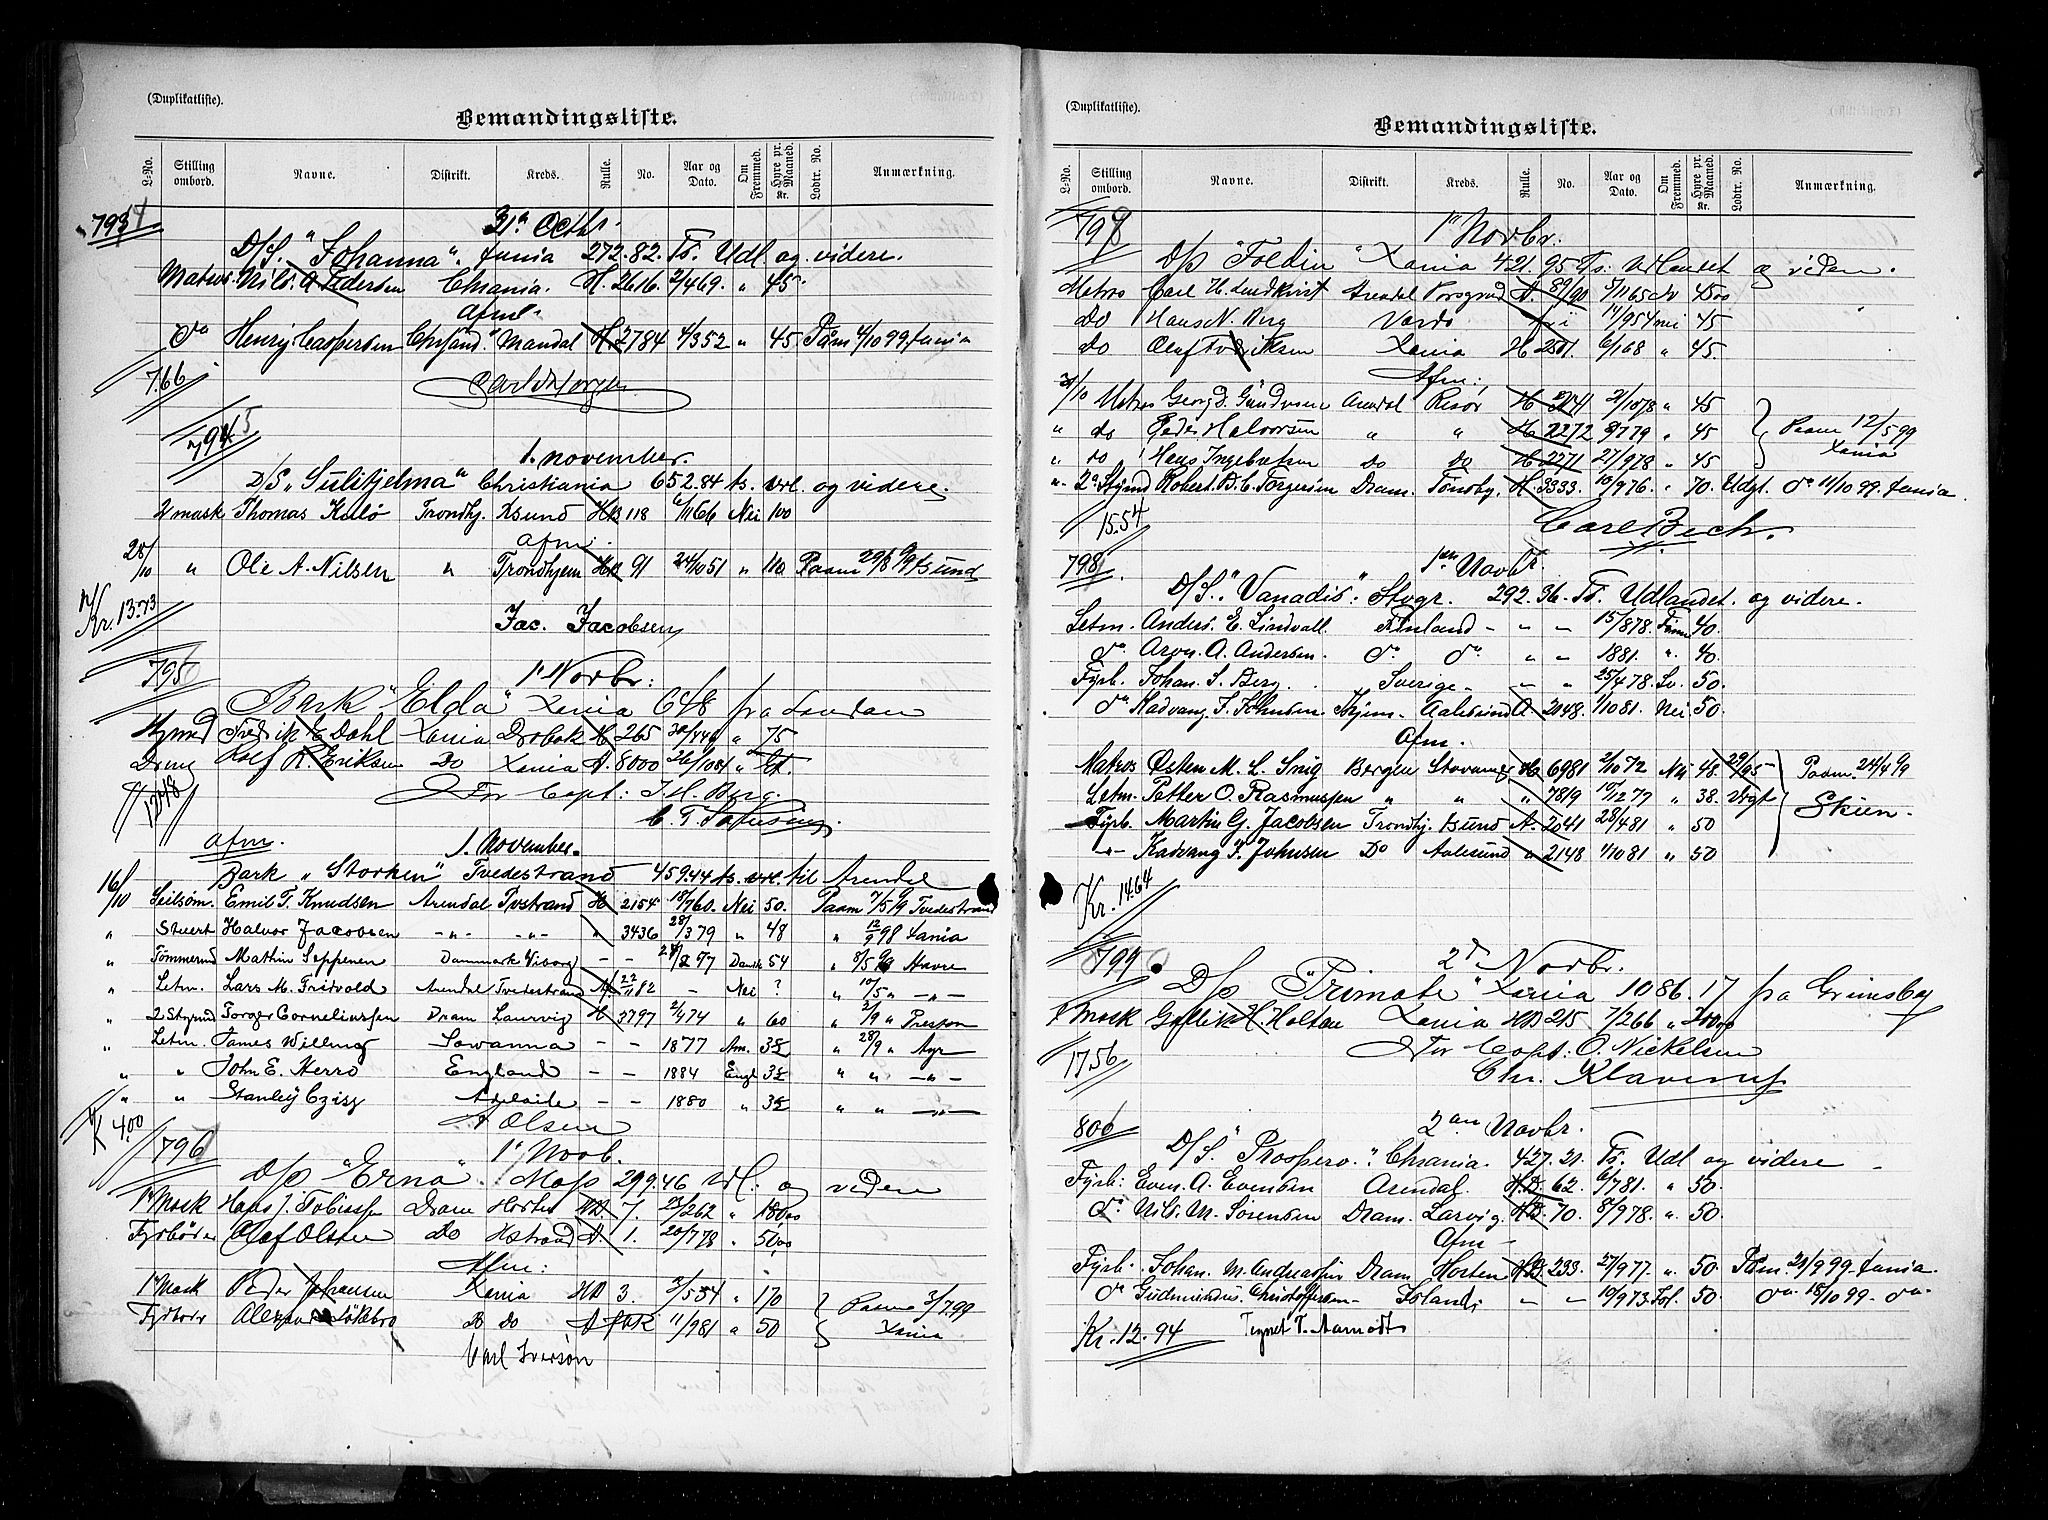 (Duplikatliste).
Bemandingsliste.
L-No. Stilling ombord. Navne. Distrikt. Kreds. Rulle. No. Aar og Dato. Om Fremmed. Hyre pr. Maaned. Kr. Lodtr. No. Anmærkning.
7934 31te Octbr.
D/S. "Johanna". Xania 272.82. Ts. Udl og videre.
Matros. Nils. A. Pedersen Chrania. H. 2616. 2/469. " 45
Afm.
do Henry Caspersen Chrsand. Mandal H. 2784 4/352 " 45 Paam 4/10 99 Xania
7.66
7945
1. november.
D/S "Sulitjelma" Christiania 652.84 ts. Url. og videre.
2 mask Thomas Kulø Trondhj. Ksund HB 118 6/1166 Nei 100
afm.
28/10 " Ole A. Nilsen " Trondhjem HB 91 24/1051 " 110 Paam 29/8 99 Ksund
Kr. 13.73
Jac. Jacobsen
795 1' Novbr:
Bark "Elda" Xania 648 fra London
Styrmd Fredrik E Dahl Xania Drøbak H 265 30/449 " 75
Dreng Rolf R. Eriksen Do Xania A. 8000 26/1081 "
1348 For Capt: J. H. Berg.
afm. 1. November.
Bark "Storken" Tvedestrand 459.44 ts. Url. til Arendal
16/10 Seilsøm. Emil T. Knudsen Arendal Tvstrand H 2154 18/760. Nei 50. Paam 7/5 99 Tvedestrand
" Stuert Halvor Jacobsen -"- -"- " 3436 28/379 " 48 " 12/9 98 Xania
" Tømmermd Mathin Seppenen Danmark Viborg - - 24/277 Dansk 54 " 8/5 99 Havre
" Letm. Lars M. Fridvold Arendal Tvedestrand A. 22/1182 - Nei ? " 10/5 " -"-
" 2 Styrmd Torger Corneliussen Dram Laurvig H 3797 2/474 " 60 " 2/9 " Preston
" Letm. James Willing Sowanna - - 1877 Am. 35 " 28/9 " Ayr
" " John E. Herro England - - 1884 Engl 35 " " -"-
" " Stanley Czisz Adelaide - - 1880 " 35 " " -"-
K 4.00 Olsen
796 1' Novb.
D/p "Erna" Moss 299.46 Url: og videre
1 Mask Hans J. Tobiassen Dram Horten HB. 7. 23/262 " 180,00
Fyrbøder Olaf Olsen do Hstrand A. 1. 20/778 " 50,00
Afm:
1 Mask Peder Johansen Xania HB 3. 2/534 " 170 Paam 3/7.99
Fyrbøder Do do 11/981 " 50 Xania
Carl Iversøn
(Duplikatliste).
Bemandingsliste.
L-No. Stilling ombord. Navne. Distrikt. Kreds. Rulle. No. Aar og Dato. Om Fremmed. Hyre pr. Maaned. Kr. Lodtr. No. Anmærkning.
798 1' Novbr.
D/p "Foldin" Xania 421.95 Ts. Udlandet og videre.
Matros Carl H. Lundkvist Arendal Porsgrund A. 89/90 5/1165 45,00
do Hans N. Berg Vardø fri 14/954 nei 45
do Olaf Fredriksen Xania H 2501. 6/168 " 45.
Afm:
31/10 Matros Georg d. Gundersen Arendal Risør H 3141 21/1078 " 45
" do Peder Halvorsen " " H 2272 8/779 " 45 Paam 12/5 99
" do Hans Ingebretsen do do H 2271 27/978 " 45 Xania
" 2den Styrmd Robert. B. C. Torgersen Dram. Tønsbg. H. 3333. 10/976. " 70. Udgt. do 11/10 99. Xania.
15.54 Carl Bech.
798 1ste Novbr.
D/S. "Vanadis". Stvgr. 292.36. Ts. Udlandet. og videre.
Letm. Anders. E. Lindvall. Finland - " - 15/878. Finne 40.
do Arvn. A. Andersen. do do " - 1881. " 40.
Fyrb. Johan. S. Berg. Sverige - - " 25/478. Sv. 50.
do Kadvang. J. Johnsen. Thjem. Aalesund A. 2048. 1/1081. Nei 50.
Afm.
Matros Østen M. L. Snig Bergen Stavanger H 6981 2/1072 Nei 48. 29/95 Paam. 24/4 99
Letm. Petter O. Rasmussen " " " 7819 10/1277 " 38. Udgt Skien.
Fyrb. Martin G. Jacobsen Trondhj. Ksund A. 2041 28/481 " 50
-"- Kadvang J. Johnsen Do Aalesund " 2148 1/1081 " 50
Kr. 14.64
799 2d Novbr.
D/p "Primate" Xania 1086.17 fra Grimsby
1 Mask Gottlieb H. Holtan Xania HB 215 7/266 "
17.56 For Capt: O. Nickelsen
Chr. Klaverus
800 2den Novbr.
D/S. "Prospero". Chrania. 427.21. Ts. Udl og videre
Fyrb: Even. A. Evensen Arendal. H.B. 62. 6/781. " 50.
do Nils. M. Sørensen Dram. Larvig. H.B. 70. 8/978. " 50.
Afm -
Fyrb. Johan. M. Andreassen Dram. Horten H.B. 233. 27/977. " 50. Paam. 28/9 99. Xania.
do Gudmundus. Christoffersen - Island - " - 10/973. Isl. 50. do 18/10 99. do
Kr. 12.94 Tegnet T. Aamodt